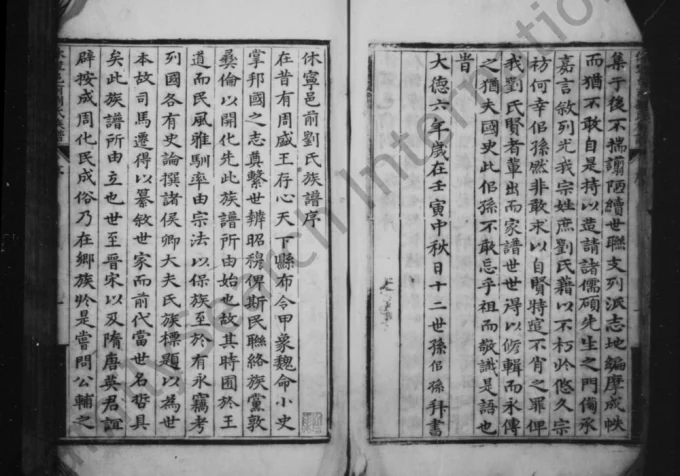 集于後不揣謭陋續世聯支列派志地編摩成帙
而猶不敢自是持以造請諸儒碩先生之門備承
嘉言敘列光我宗姓庶劉氏藉以不朽於悠久宗
祊何幸侶孫愳非敢求以自賢特逭不肖之罪俾
我劉氏賢者軰出而家譜世世得以修輯而永傳
之猶夫國史此侶孫不敢忘乎祖而敬識是語也
昔
大德六年歲在壬寅中秋日十二世孫侶孫拜書
休寧邑前劉氏族譜序
在昔有周盛王存心天下縣布令甲象魏命小史
掌邦國之志奠繫世辨昭穆俾斯民聯絡族黨敦
彝倫以開化先此族譜所由始也故其時囿於王
道而民風雅馴率由宗法以保族至於有永竊考
列國各有史論撰諸侯卿大夫氏族標題以為世
本故司馬遷得以纂敘世家而前代當世名喆具
矣此族譜所由立也世至晉宋以及隋唐英君誼
辟按成周化民成俗乃在鄉族於是嘗問公輔之